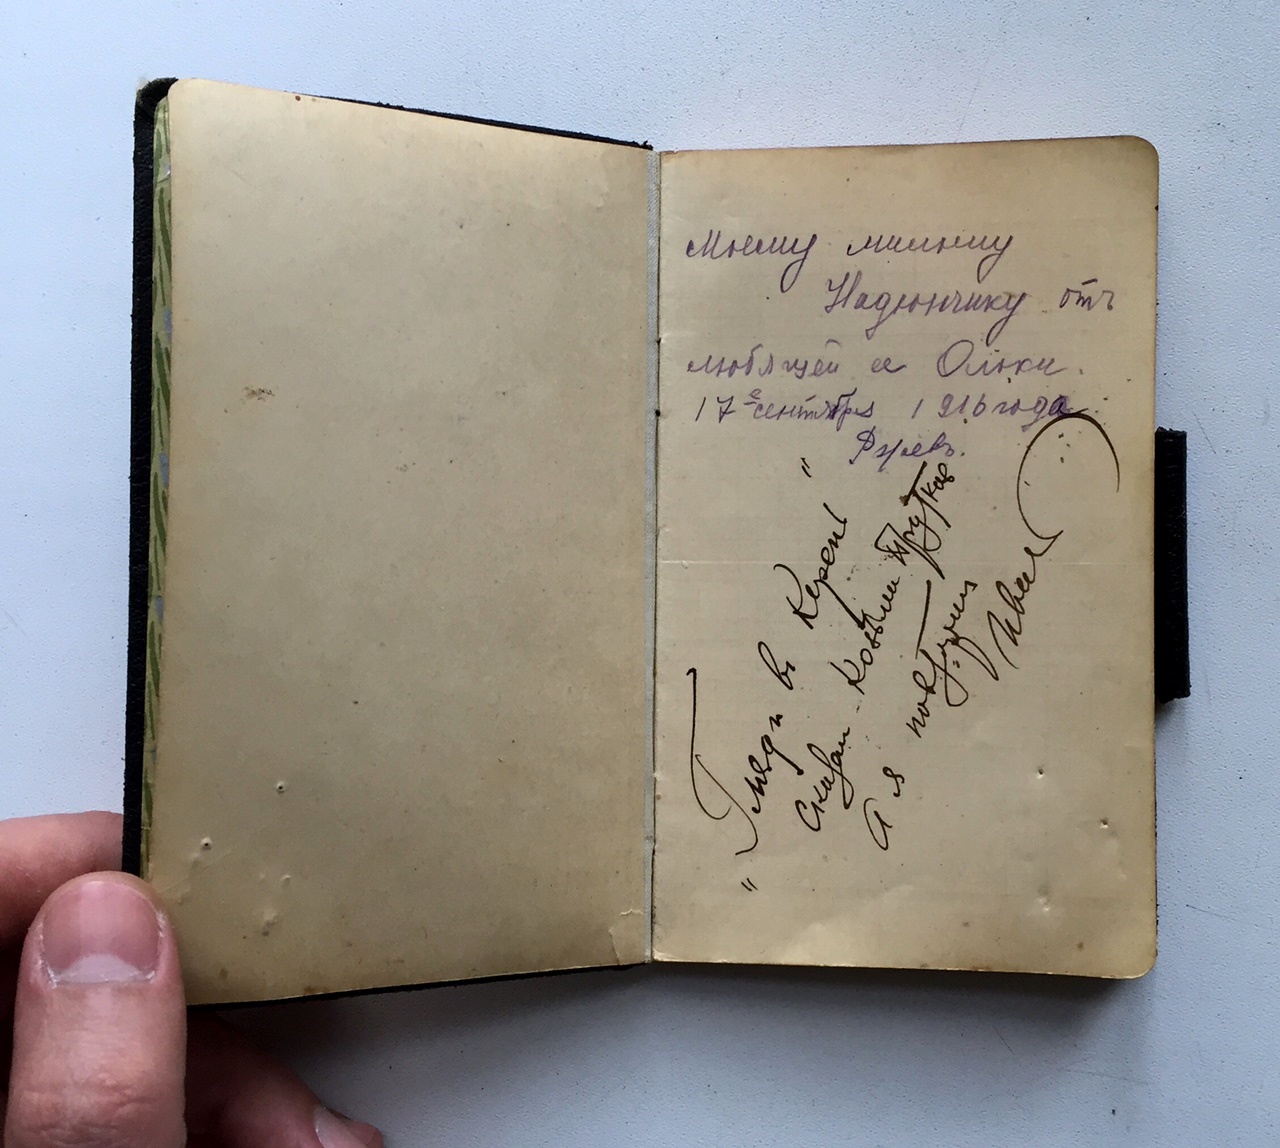 Моему милому
Надюнчику отъ
любящей ея Ольки.
17е сентября 1916 года
Ржевъ.
"Гляди въ Корень"
Сказал Козьма Прутков
А я повторил